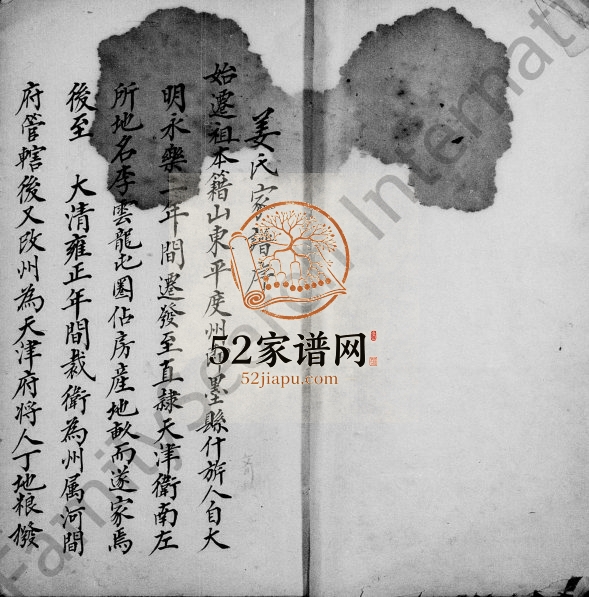 姜氏家譜序
始遷祖本籍山東平度州即墨縣什旂人自大
明永樂二年間遷發至直隷天津衛南左
所地名李雲龍屯圏佔房産地畝而遂家焉
後至 大清雍正年間裁衛為州属河間
府管轄後又改州為天津府將人丁地粮撥
52家谱网
52jiapu.com
FamilySearch International